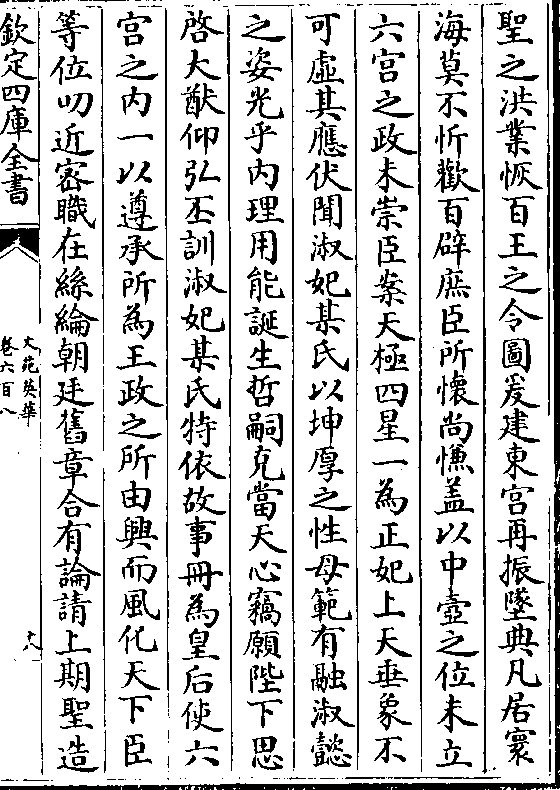 聖之洪業恢百王之令圖爰建東宮再振墜典凡居寰
海莫不忻歡百辟庶臣所懷尚慊盖以中壼之位未立
六宮之政未崇臣案天極四星一為正妃上天垂象不
可虛其應伏聞淑妃某氏以坤厚之性母範有融淑懿
之姿光乎内理用能誕生哲嗣克當天心竊願陛下思
啓大猷仰弘丕訓淑妃某氏特依故事冊為皇后使六
宮之内一以遵承所為王政之所由興而風化天下臣
等位叨近密職在絲綸朝廷舊章合有論請上期聖造
欽定四庫全書
文苑英華
卷六百八
十八